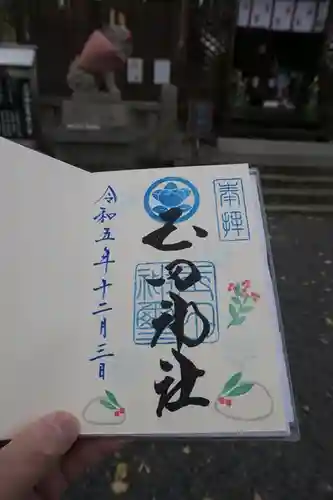 奉拝
玉田神社
令和五年十二月三日